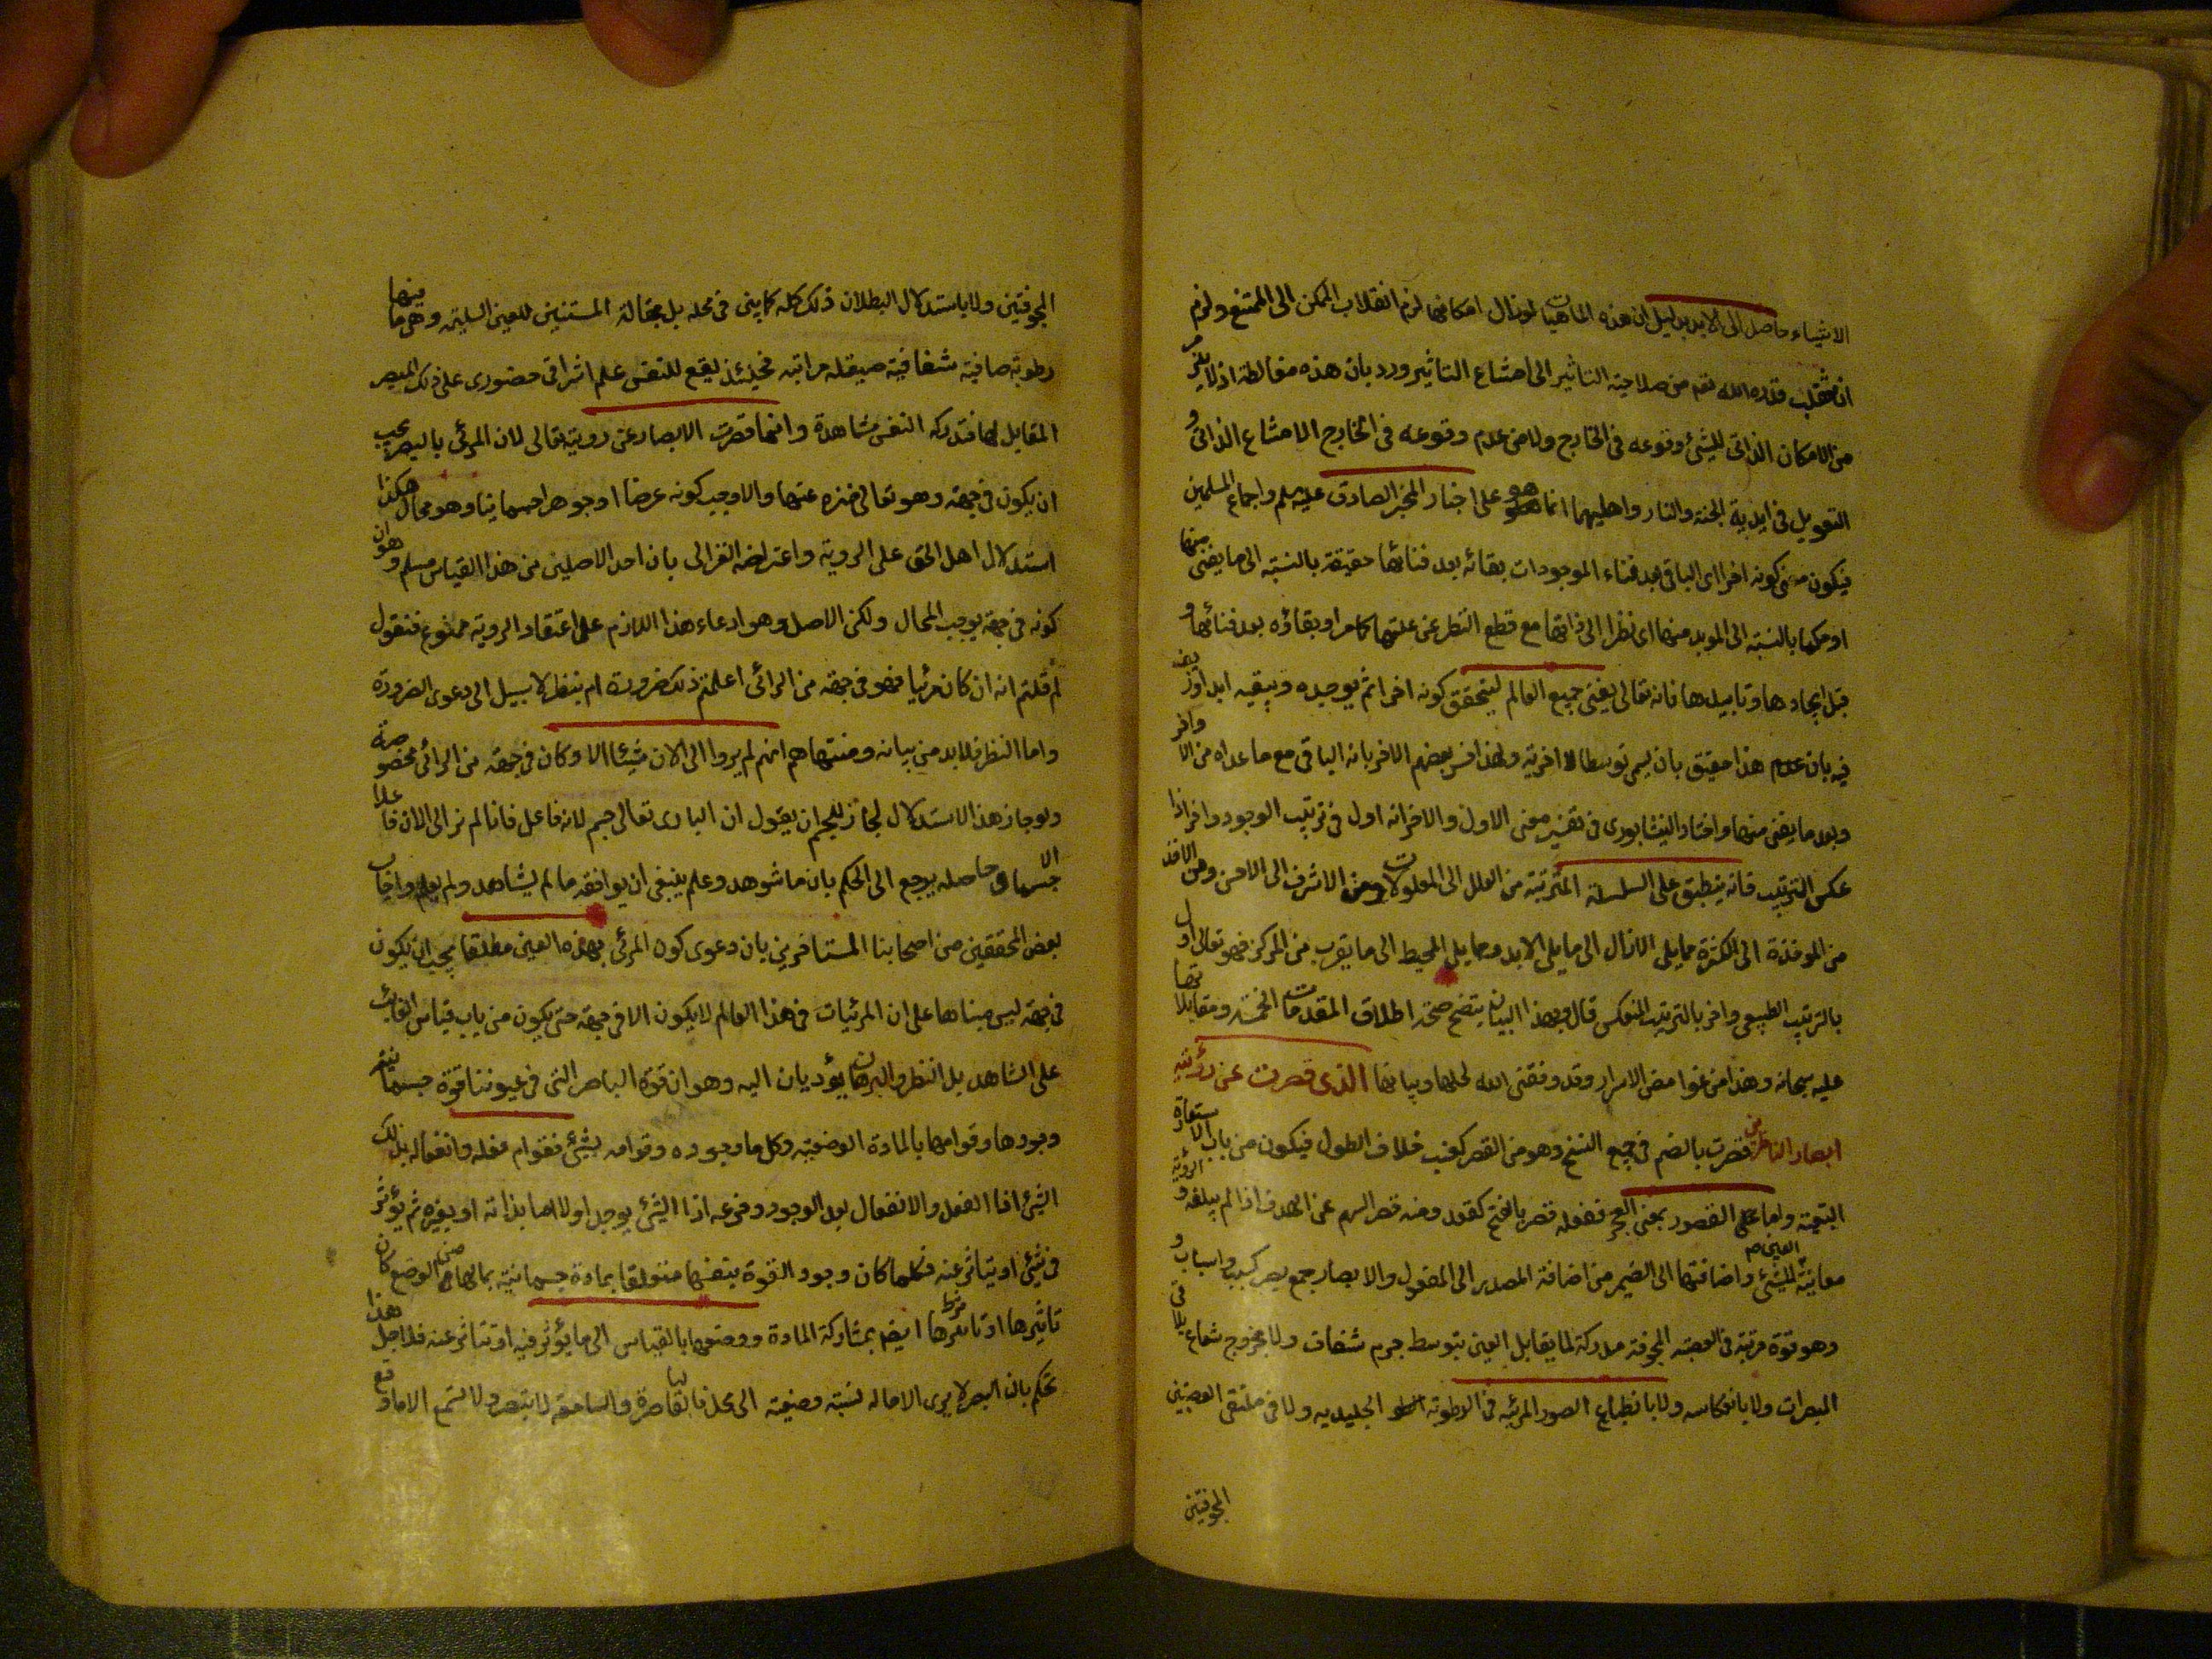 الاشياء حاصل الى الابد بدليل ان هذه الماهيات لو زال امكانها لزم انقلاب الممكن الى الممتنع ولزم
قدرة الله تعم من صلاحية التاثير الى امتناع التاثير ورد بان هذه مغالطة اذ لا يلزم
من الامكان الذاتى للشئ وقوعه فى الخارج ولا من عدم وقوعه فى الخارج الامتناع الذاتى و
التعويل فى ابدية الجنة والنار واهليهما انما هو على اخبار المخبر الصادق عليه سلم واجماع المسلمين
فيكون معنى كونه اخرا اى الباقى بعد فناء الموجودات بقائه بعد فنائها حقيقة بالنسبة الى ما يفنى منها
او حكما بالنسبة الى الموبد منها اى نظرا الى ذاتها مع قطع النظر عن علتها كما مر او بقاؤه بعد فنائها و
قبل ايجادها وتابيدها فانه تعالى يفنى جميع العالم ليتحقق كونه اخرا ثم يوجده ويبقيه ابدا
فيه بان هذا حقيق بان يسمى توسطا لا اخرية ولهذا فسر بعضهم الاخر بانه الباقى مع ما عداه من الاواخر
وبعد ما يفنى منها واختار النيشابورى فى تفسير معنى الاول والاخر انه اول فى ترتيب الوجود واخر اذا
عكس الترتيب فانه ينطبق على السلسلة المترتبة من العلل الى المعلولات ومن الاشرف الى الاخس ومن الاخذ
من الوحدة الى الكثرة مما يلى الازال الى ما يلى الابد ومما يلى المحيط الى ما يقرب من المركز فهو تعالى اول
بالترتيب الطبيعى واخر بالترتيب المنعكس قال وبهذا البيان يتضح صحة اطلاق المقدمات الخمسة ومقابلاتها
عليه سبحانه وهذا من غوامض الاسرار وقد وفقنى الله لحلها وبيانها الذى قصرت عن رؤيته
ابصار الناظرين قصرت بالضم فى جميع النسخ وهو من القصر كعنب خلاف الطول فيكون من باب الاستعارة
التبعية واما على القصور بمعنى العجز ففعله قصر بالفتح كقعد ومنه قصر السهم عن الهدف اذا لم يبلغه و الرؤية
معاينة العين للشئ واضافتها الى الضمير من اضافة المصدر الى المفعول والابصار جمع بصر كسبب واسباب و
وهو قوة مرتبة فى العصبة المجوفة مدركة لما يقابل العين بتوسط جرم شفاف ولا بخروج شعاع يلاقى
المبصرات ولا بانعكاسه ولا بانطباع الصور المرئية فى الرطوبة الجليدية ولا فى ملتقى العصبتين
المجوفتين
المجوفتين ولا باستدلال البطلان ذلك كله كما بين فى محله بل بمقابلة المستنير للعين السليمة وهى ما فيها
رطوبة صافية شفافية صيقلة مراتية فحينئذ يقع للنفس علم اشراقى حضورى على ذلك المبصر
المقابل لها فتدركه النفس مشاهدة وانما قصرت الابصار عن رويته تعالى لان المرئى بالبصر يجب
ان يكون فى جهة وهو تعالى منزه عنها والا وجب كونه عرضا او جوهرا جسمانيا وهو محال هكذا
استدلال اهل الحق على الروية واعترضه الغزالى بان احد الاصلين من هذا القياس مسلم وهو ان
كونه فى جهة يوجب المحال ولكن الاصل وهو ادعاء هذا اللازم على اعتقاد الروية ممنوع فنقول
لم قلتم انه ان كان مرئيا فهو فى جهة من الرائى اعلمتم ذلك ضرورة ام بنظر لا سبيل الى دعوى الضرورة
واما النظر فلابد من بيانه ومنتهاهم انهم لم يروا الى الان شيئا الا وكان فى جهة من الرائى مخصوصة
ولو جاز هذا الاستدلال لجاز للمجسم ان يقول ان البارى تعالى جسم لانه فاعل فانا لم نر الى الان فاعلا
الا جسما وحاصله يرجع الى الحكم بان ما شوهد وعلم ينبغى ان يوافقه ما لم يشاهد ولم يعلم واجاب
بعض المحققين من اصحابنا المتاخرين بان دعوى كون المرئى بهذه العين مطلقا يجب ان يكون
فى جهة ليس مبناها على ان المرئيات فى هذا العالم لا يكون الا فى جهة حتى يكون من باب قياس الغائب
على الشاهد بل النظر والبرهان يؤديان اليه وهو ان قوة الباصر التى فى عيوننا قوة جسمانية
وجودها وقوامها بالمادة الوضعية وكل ما وجوده وقوامه بشئ فقوام فعله وانفعاله بذلك
الشئ اذا الفعل والانفعال بعد الوجود وفرعه اذا الشئ يوجد اولا اما بذاته او بغيره ثم يؤثر
فى شئ او يتاثر عنه فكلما كان وجود القوة بنفسها متعلقا بمادة جسمانية بمالها من الوضع كان
تاثيرها او تاثرها ايضا بمشاركة المادة ووضعها بالقياس الى ما يؤثر فيه او تتاثر عنه فلاجل هذا
نحكم بان البصر لا يرى الا ما له نسبة وضعية الى محل الباصرة والسامعة لا تسمع الا ما وقع